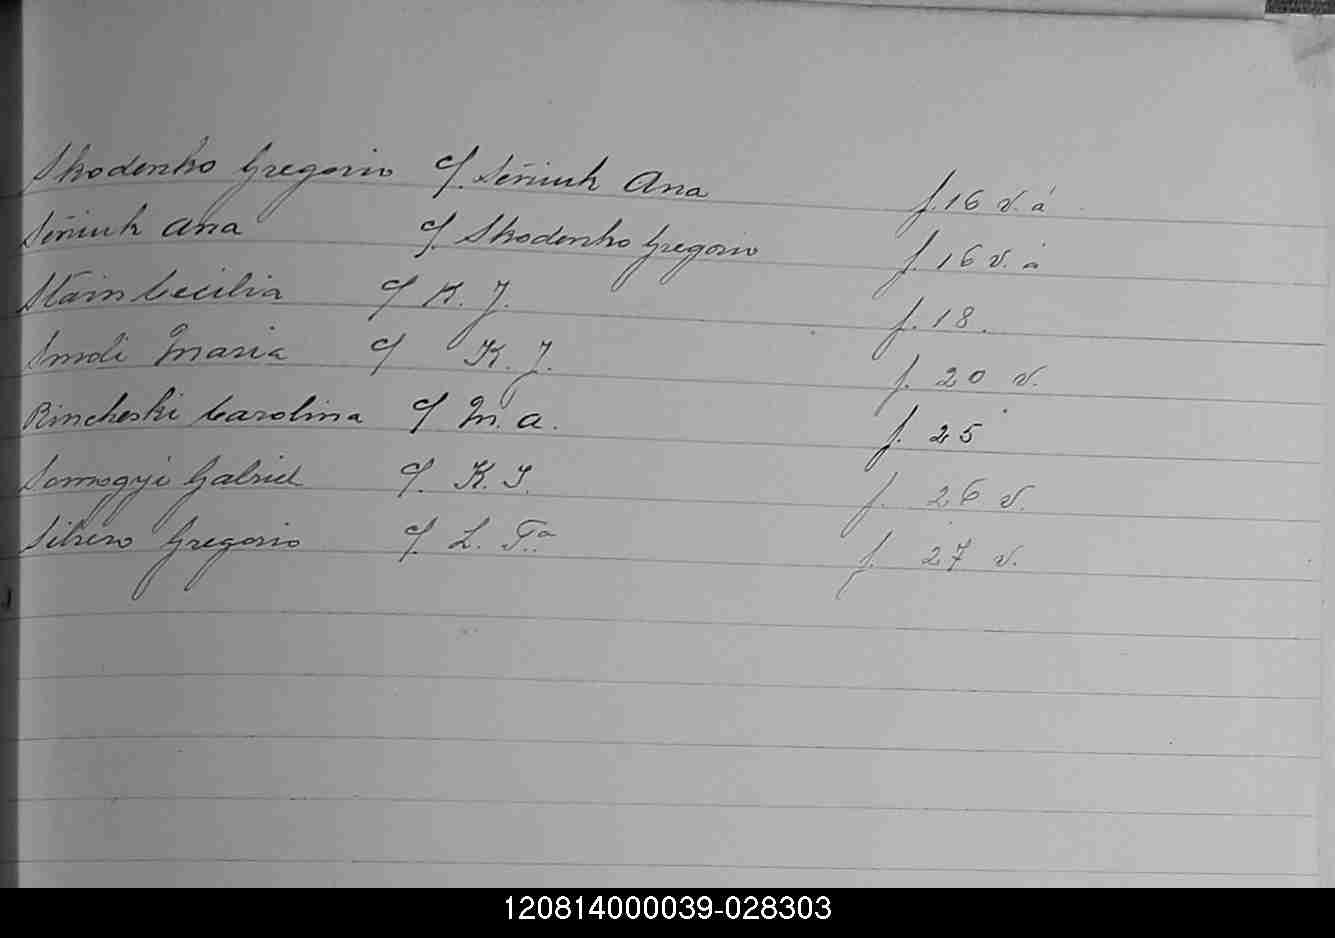 Skodenko Gregorio c/. Señiuk Ana f. 16 v. á
Señiuk Ana c/ Skodenko Gregorio f. 16 v. á
Stain Cecilia c/ K. J. f. 18.
Smoli Maria c/ K. J. f. 20 v.
Rincheski Carolina c/ M. A. f. 25
Somogyi Gabriel c/. K. J. f. 26 v.
Gregorio c/. L. Fa. f. 27 v.
120814000039-028303